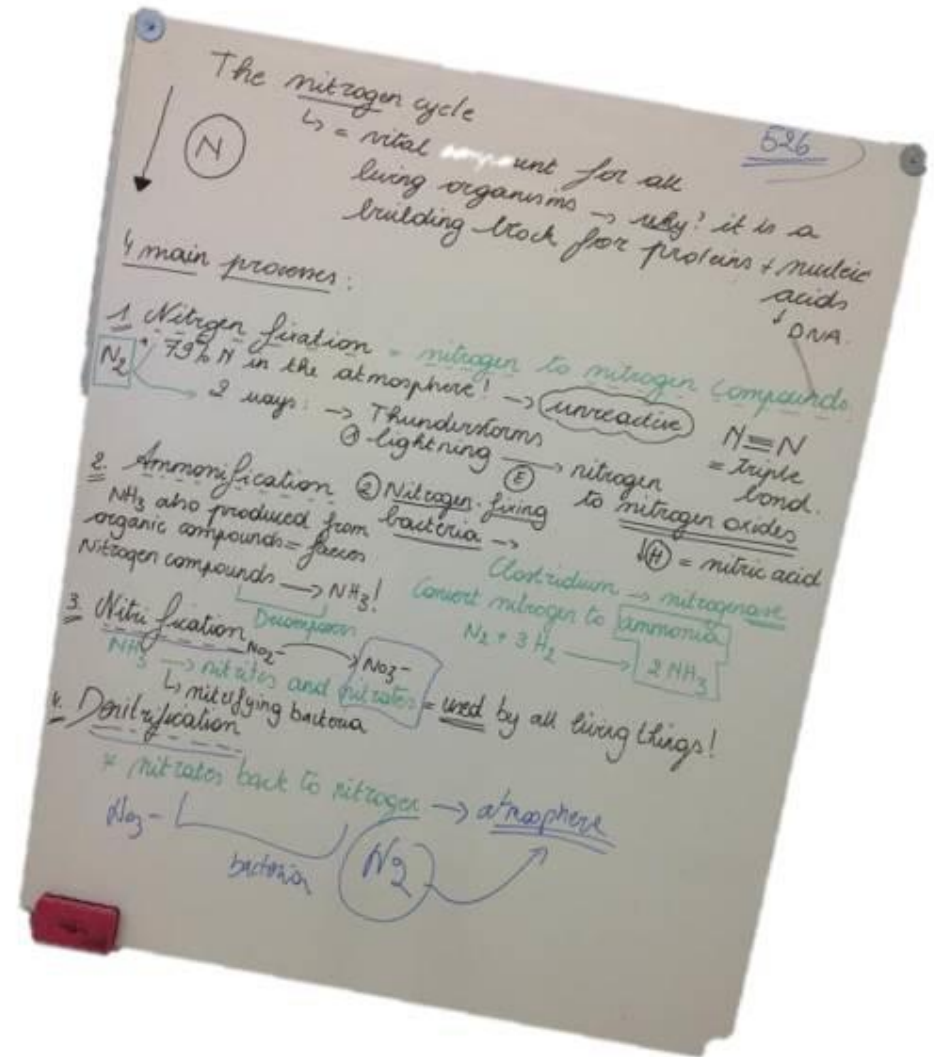 The nitrogen cycle
526
N
↳ = vital unt for all
living organisms → why? it is a
building block for proteins + nucleic
acids
↓ DNA
4 main processes:
1. Nitrgen fixation = nitrogen to nitrogen compounds.
N2 • 79% N in the atmosphere! → unreactive
N≡N
= triple
bond.
2 ways: → Thunderstorms
① lightning → nitrogen
Ⓔ to nitrogen oxides
↓Ⓗ = nitric acid
② Nitrogen-fixing
bacteria →
Clostridium → nitrogenase
Convert nitrogen to ammonia
N2 + 3 H2 → 2 NH3
2. Ammonification
NH3 also produced from
organic compounds = faeces
Nitrogen compounds → NH3!
3. Nitrification
NO2- → NO3-
NH3 → nitrites and nitrates = used by all living things!
↳ nitrifying bacteria
4. Denitrification
* nitrates back to nitrogen → atmosphere
NO3-
bacteria
N2